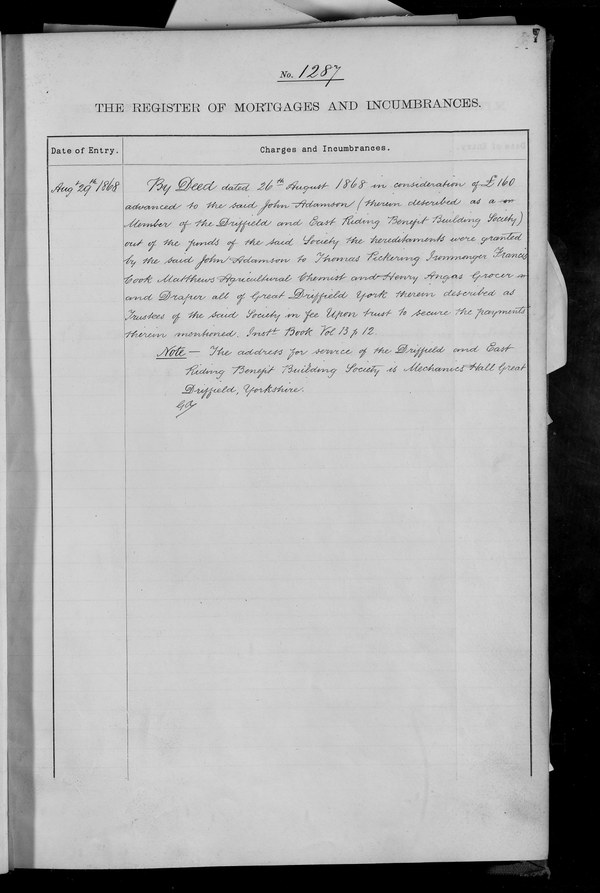 No. 1287
THE REGISTER OF MORTGAGES AND INCUMBRANCES.
Date of Entry.
Charges and Incumbrances.
Augt 29th 1868
By Deed dated 26th August 1868 in consideration of £160
advanced to the said John Adamson (therein described as a
Member of the Driffield and East Riding Benefit Building Society)
out of the funds of the said Society the hereditaments were granted
by the said John Adamson to Thomas Pickering Ironmonger Francis
Cook Matthews Agricultural Chemist and Henry Angas Grocer
and Draper all of Great Driffield York therein described as
Trustees of the said Society in fee Upon trust to secure the payments
therein mentioned. Instt Book Vol 13 p 12
Note — The address for service of the Driffield and East
Riding Benefit Building Society is Mechanics Hall Great
Driffield, Yorkshire.